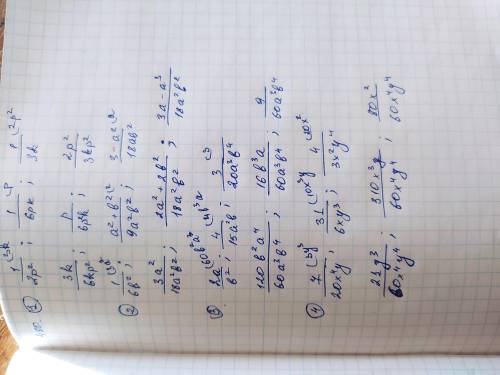 ① 1/2p² (3k ; 1/6pk (p ; p/3k (2p²
3k/6kp² ; p/6p²k ; 2p²/3kp²
② 1/6b² (3a² ; a²+b²/9a²b² (2 ; 3-a²/18ab² (a
3a²/18a²b² ; 2a²+2b²/18a²b² ; 3a-a³/18a²b²
③ 2a/b² (60b²a³ ; 4/15a²b (4b³a ; 3/20a³b⁴ (3
120b²a⁴/60a³b⁴ ; 16b³a/60a³b⁴ ; 9/60a³b⁴
④ 7/20x⁴y (3y³ ; 31/6xy³ (10x³y ; 4/3x²y⁴ (20x²
21y³/60x⁴y⁴ ; 310x³y/60x⁴y⁴ ; 80x²/60x⁴y⁴